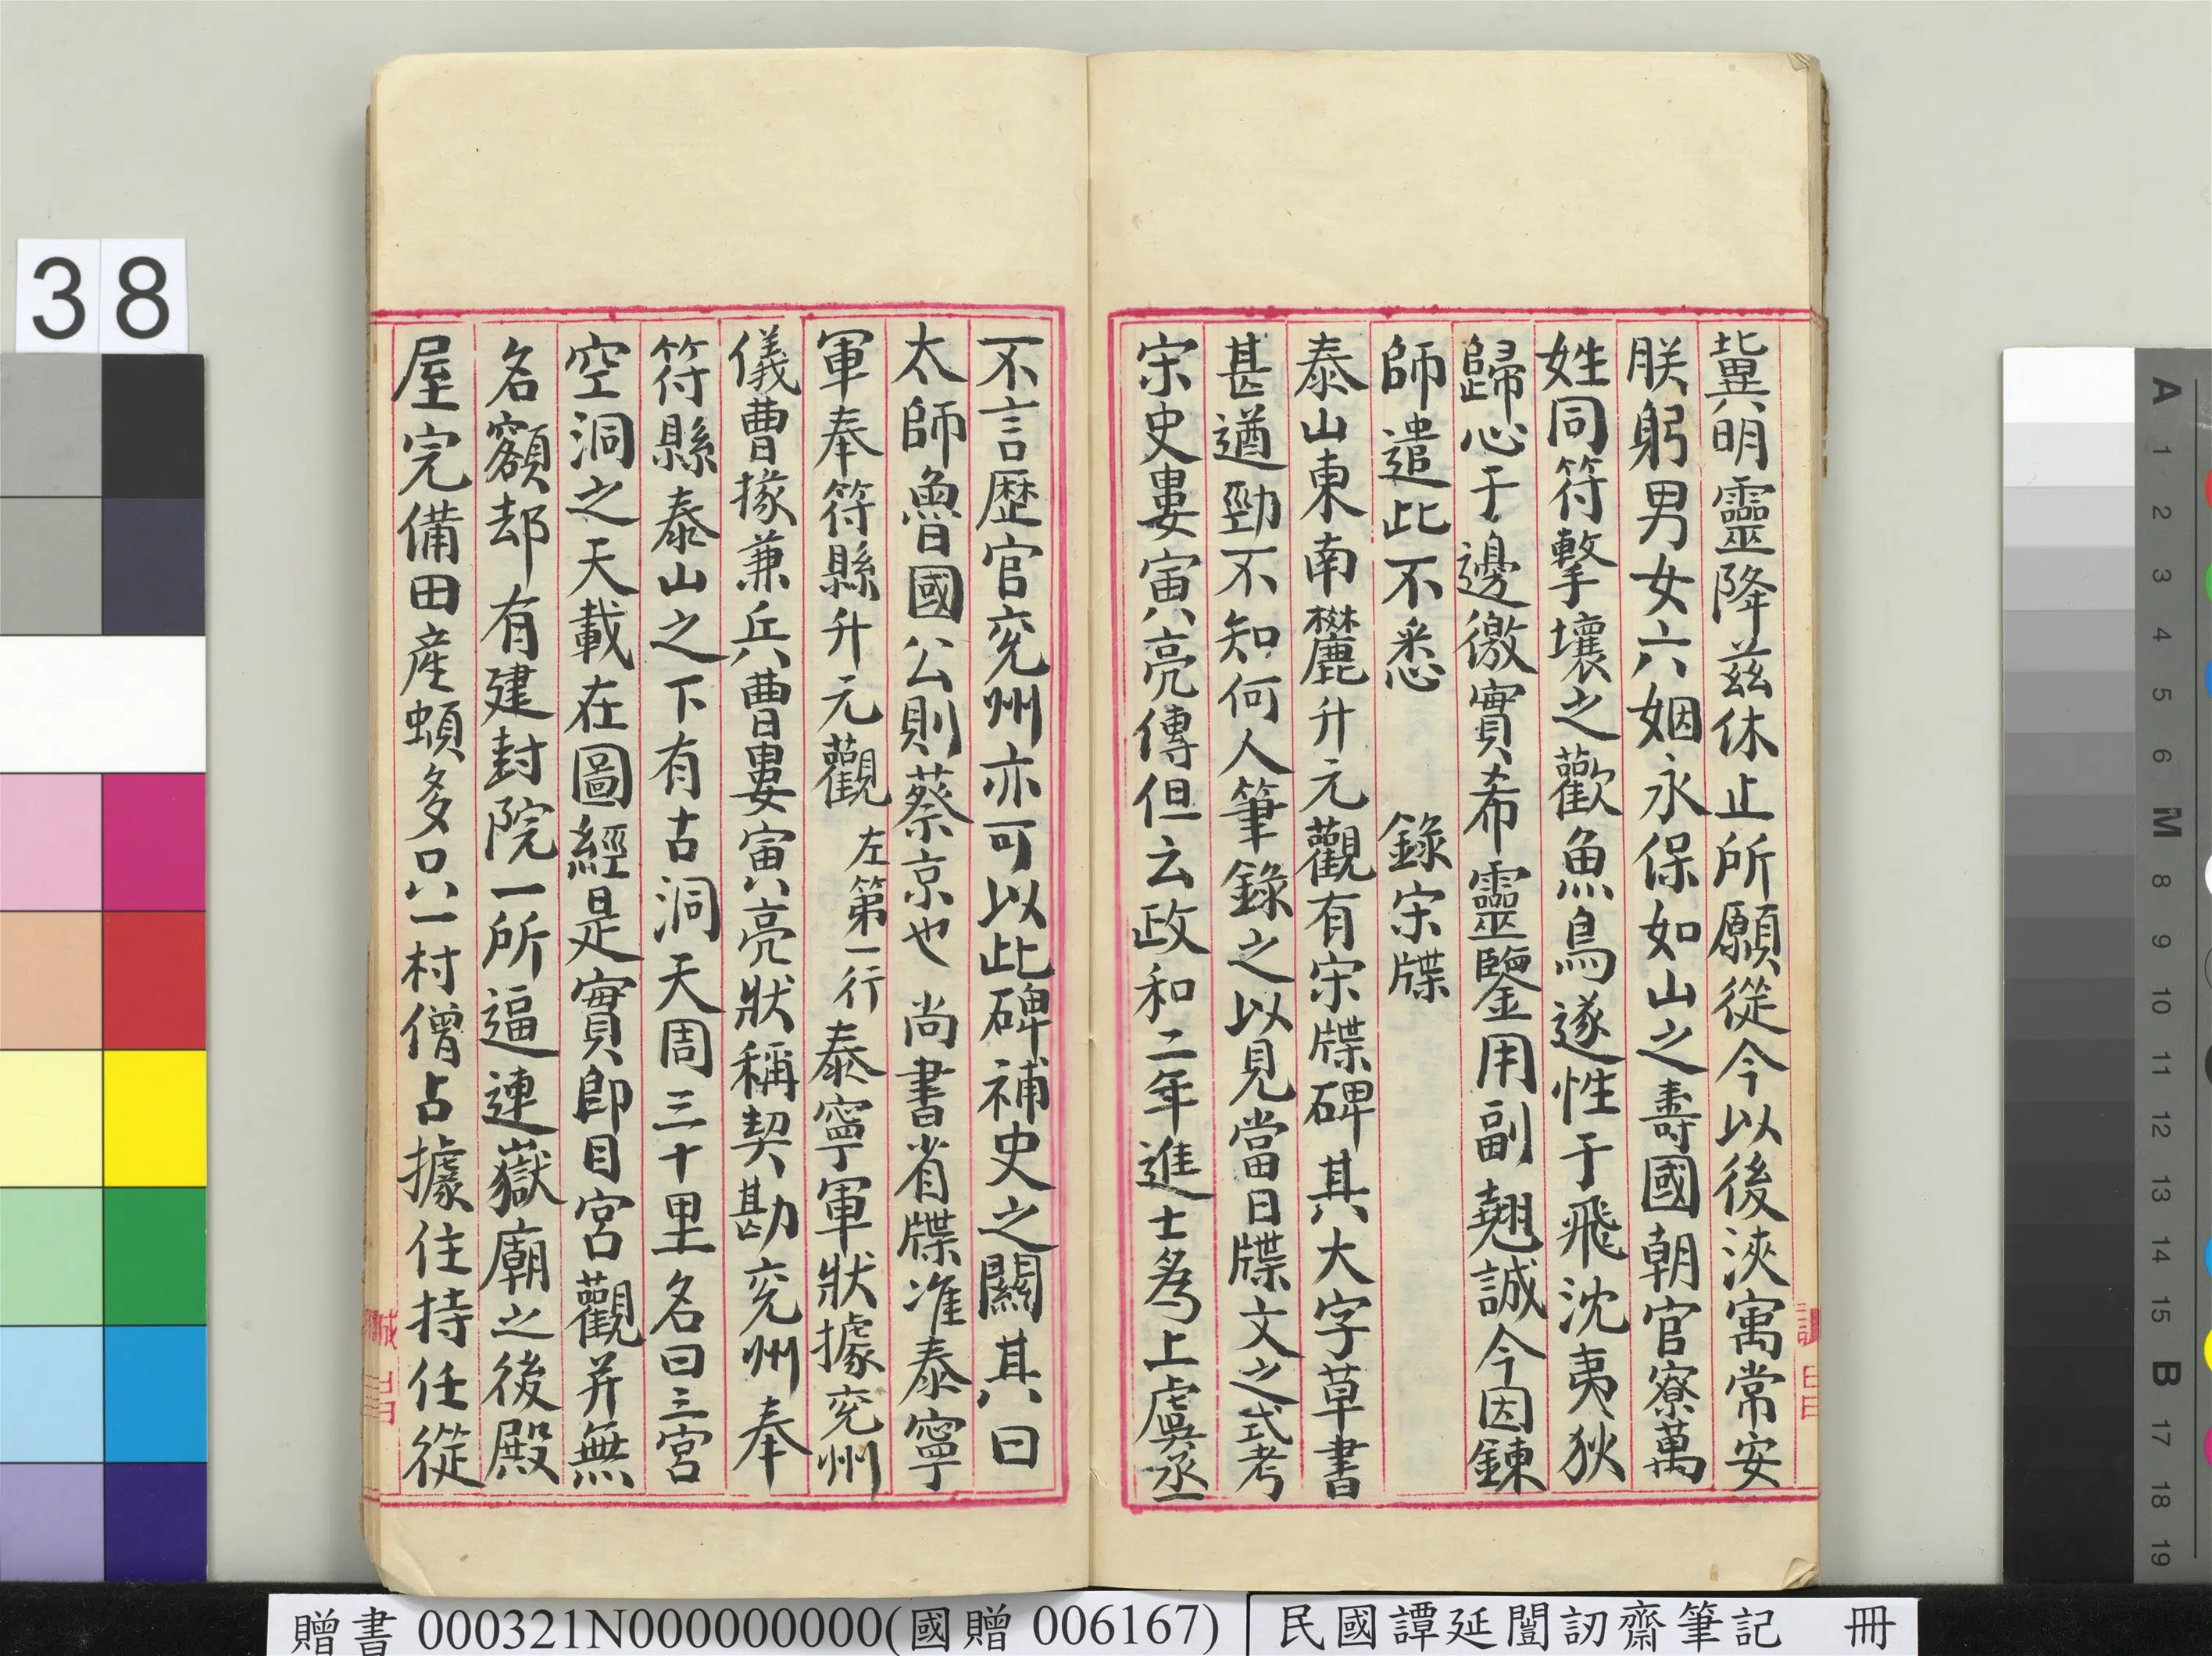 冀明靈降茲休止所願從今以後浹寓常安
朕躬男女六姻永保如山之壽國朝官寮萬
姓同符擊壤之歡魚鳥遂性于飛沈夷狄
歸心于邊徼實希靈鑒用副翹誠今因鍊
師遣此不悉　錄宋牒
泰山東南麓升元觀有宋牒碑其大字草書
甚遒勁不知何人筆錄之以見當日牒文之式考
宋史婁寅亮傳但云政和二年進士為上虞丞
不言歷官兗州亦可以此碑補史之闕其曰
太師魯國公則蔡京也　尚書省牒准泰寧
軍奉符縣升元觀　左第一行　泰寧軍狀據兗州
儀曹掾兼兵曹婁寅亮狀稱契勘兗州奉
符縣泰山之下有古洞天周三十里名曰三宮
空洞之天載在圖經是實即目宮觀並無
名額却有建封院一所逼連嶽廟之後殿
屋完備田產頗多只一村僧占據住持任從
38
贈書 000321N000000000(國贈 006167)
民國譚延闓訒齋筆記　冊
A 1 2 3 4 5 6 M 8 9 10 11 12 13 14 15 B 17 18 19